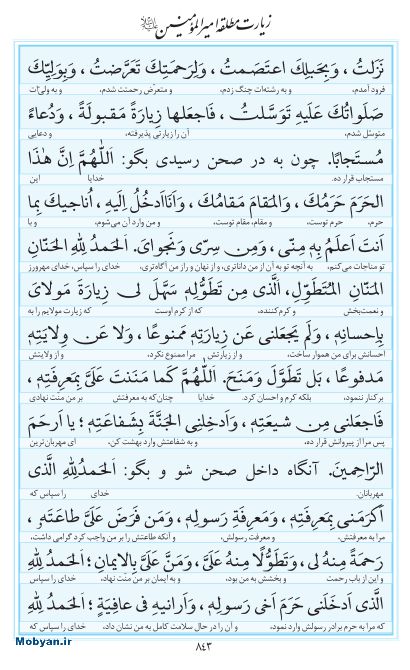 زیارت مطلقهٔ امیرالمؤمنین
نَزَلتُ ، وَبِحَبلِكَ اعتَصَمتُ ، وَلِرَحمَتِكَ تَعَرَّضتُ ، وَبِوَلِیِّكَ
فرود آمدم، و به رشته‌ات چنگ زدم، و متعرّض رحمتت شدم، و به ولیّ‌ات
صَلَواتُكَ عَلَیهِ تَوَسَّلتُ، فَاجعَلها زِیارَةً مَقبولَةً ، وَدُعاءً
متوسّل شدم، آن را زیارتی پذیرفته، و دعایی
مُستَجابًا. چون به در صحن رسیدی بگو: اَللّٰهُمَّ اِنَّ هٰذَا
مستجاب قرار ده. خدایا این
الحَرَمَ حَرَمُكَ، وَالمَقامَ مَقامُكَ، وَاَنَااَدخُلُ اِلَیهِ، اُناجیكَ بِما
حرم، حرم توست، و مقام، مقام توست، و من وارد آن می‌شوم، و با
اَنتَ اَعلَمُ بِهٖ مِنّی، وَمِن سِرّی وَنَجوایَ. اَلحَمدُ لِلّٰهِ الحَنّانِ
تو مناجات می‌کنم، به آنچه تو به آن از من داناتری، و از نهان و راز من آگاه‌تری، خدای را سپاس، خدای مهرورز
المَنّانِ المُتَطَوِّلِ، الَّذی مِن تَطَوُّلِهٖ سَهَّلَ لی زِیارَةَ مَولایَ
و نعمت‌بخش و کرم‌کننده، که از کرم اوست که زیارت مولایم را به
بِاِحسانِهٖ، وَلَم یَجعَلنی عَن زِیارَتِهٖ مَمنوعًا، وَلا عَن وِلایَتِهٖ
احسانش برای من هموار ساخت، و از زیارتش مرا ممنوع نکرد، و از ولایتش
مَدفوعًا، بَل تَطَوَّلَ وَمَنَحَ. اَللّٰهُمَّ کَما مَنَنتَ عَلَیَّ بِمَعرِفَتِهٖ،
بر کنار ننمود، بلکه کرم و احسان کرد. خدایا چنان‌که به معرفتش بر من منّت نهادی
فَاجعَلنی مِن شیعَتِهٖ، وَاَدخِلنِی الجَنَّةَ بِشَفاعَتِهٖ؛ یا اَرحَمَ
پس مرا از پیروانش قرار ده، و به شفاعتش وارد بهشت کن، ای مهربان‌ترین
الرّاحِمینَ. آنگاه داخل صحن شو و بگو: اَلحَمدُلِلّٰهِ الَّذی
مهربانان. خدای را سپاس که
اَکرَمَنی بِمَعرِفَتِهٖ، وَمَعرِفَةِ رَسولِهٖ، وَمَن فَرَضَ عَلَیَّ طاعَتَهٗ ،
مرا به معرفتش، و معرفت رسولش، و آنکه طاعتش را بر من واجب کرد گرامی داشت،
رَحمَةً مِنهُ لی ، وَتَطَوُّلًا مِنهُ عَلَیَّ، وَمَنَّ عَلَیَّ بِالایمانِ؛ اَلحَمدُ لِلّٰهِ
و این از باب رحمت و بخشش به من بود، و به ایمان بر من منّت نهاد، خدای را سپاس
الَّذی اَدخَلَنی حَرَمَ اَخی رَسولِهٖ، وَاَرانیهِ فی عافِیَةٍ؛ اَلحَمدُ لِلّٰهِ
که مرا به حرم برادر رسولش وارد نمود، و آن را در حال سلامت کامل به من نشان داد، خدای را سپاس که
٨٤٣
Mobyan.ir